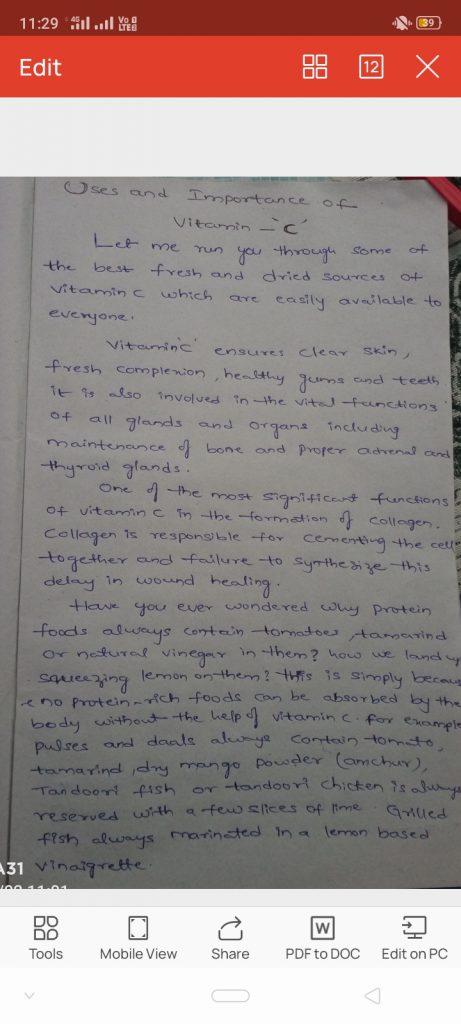 11:29
4G
Vo
LTE
39
Edit
12
Uses and Importance of
Vitamin - 'C'
Let me run you through some of
the best fresh and dried sources of
Vitamin C which are easily available to
everyone.
Vitamin'C' ensures clear skin,
fresh complexion, healthy gums and teeth
it is also involved in the vital functions
of all glands and organs including
maintenance of bone and proper adrenal and
thyroid glands.
One of the most significant functions
of vitamin C in the formation of collagen.
Collagen is responsible for cementing the cell
together and failure to synthesize this
delay in wound healing.
Have you ever wondered why protein
foods always contain tomatoes, tamarind
or natural vinegar in them? how we land up
squeezing lemon on them? this is simply becaus
e no protein-rich foods can be absorbed by the
body without the help of vitamin C. for example
pulses and daals always contain tomato,
tamarind, dry mango powder (amchur),
Tandoori fish or tandoori chicken is always
reserved with a few slices of lime. Grilled
fish always marinated in a lemon based
vinaigrette.
A31
Tools
Mobile View
Share
W
PDF to DOC
Edit on PC